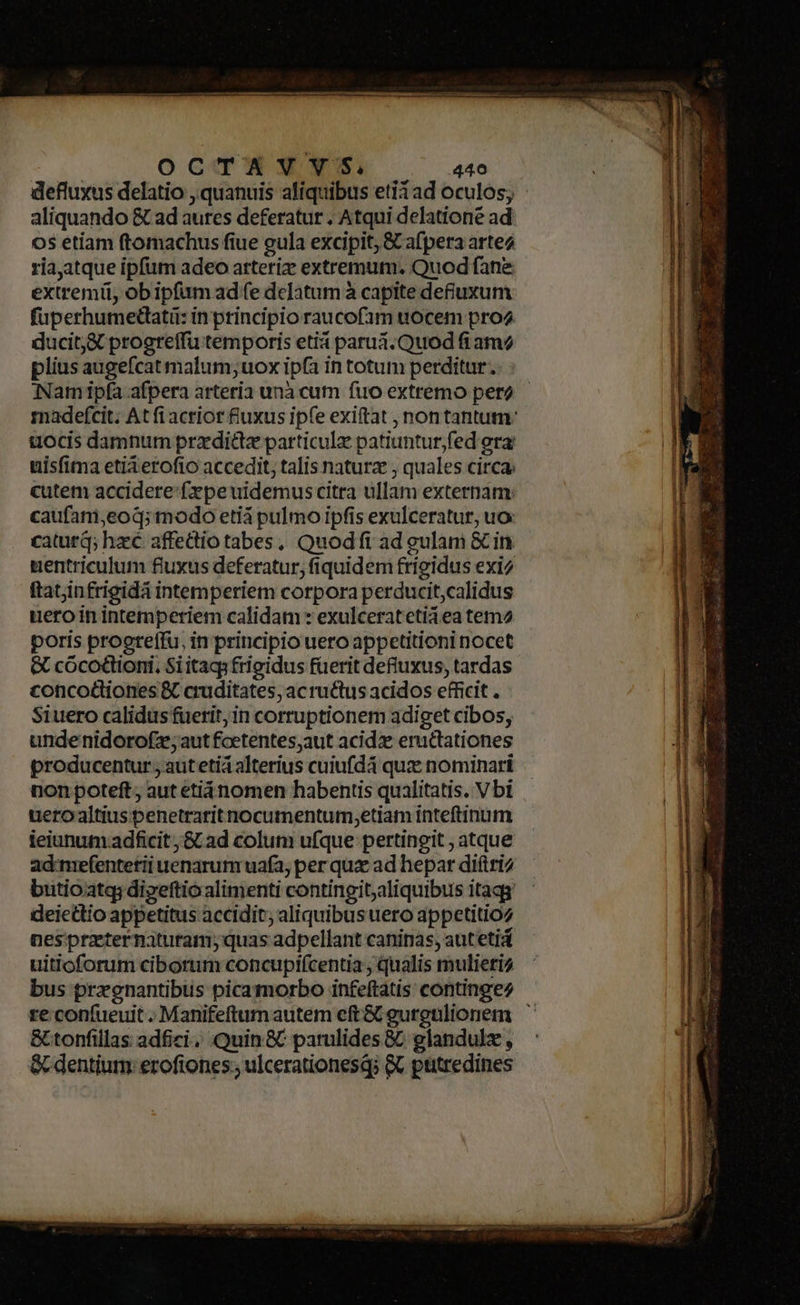 OCTAVVS. 440
defluxus delatio, quanuis aliquibus etiã ad oculos,
aliquando & ad aures deferatur. Atqui delationẽ ad
os etiam ſtomachus ſiue gula excipit, & aſpera arte⸗
ria, atque ipſum adeo arteriæ extremum. Quod ſane
extremũ, ob ipſum ad ſe delatum à capite defluxum
ſuperhumectatũ: in principio raucoſam uocem pro⸗
ducit, & progreſſu temporis etiã paruã. Quod ſi am⸗
plius augeſcat malum, uox ipſa in totum perditur.
Nam ipſa aſpera arteria unà cum ſuo extremo per⸗
madeſcit. At ſi acrior fluxus ipſe exiſtat, non tantum
uocis damnum prædictæ particulæ patiuntur, ſed gra
uisſima etiã eroſio accedit, talis naturæ, quales circa
cutem accidere ſæpe uidemus citra ullam externam
cauſam, eoq; modo etiã pulmo ipſis exulceratur, uo
caturq; hæc affectio tabes. Quod ſi ad gulam & in
uentriculum fluxus deferatur, ſiquidem frigidus exi⸗
ſtat, in frigidã intemperiem corpora perducit, calidus
uero in intemperiem calidam: exulcerat etiã ea tem⸗
poris progreſſu, in principio uero appetitioni nocet
& cõcoctioni. Si itaq; frigidus fuerit defluxus, tardas
concoctiones & cruditates, ac ructus acidos efficit.
Si uero calidus fuerit, in corruptionem adiget cibos,
unde nidoroſæ, aut fœtentes, aut acidæ eructationes
producentur, aut etiã alterius cuiuſdã quæ nominari
non poteſt, aut etiã nomen habentis qualitatis. Vbi
uero altius penetrarit nocumentum, etiam inteſtinum
ieiunum adficit, & ad colum uſque pertingit, atque
ad meſenterii uenarum uaſa, per quæ ad hepar diſtri⸗
butio atq; digeſtio alimenti contingit, aliquibus itaq;
deiectio appetitus accidit, aliquibus uero appetitio⸗
nes præter naturam, quas adpellant caninas, aut etiã
uitioſorum ciborum concupiſcentia, qualis mulieri⸗
bus prægnantibus pica morbo infeſtatis continge⸗
re conſueuit. Manifeſtum autem eſt & gurgulionem
& tonſillas adfici. Quin & parulides & glandulæ,
& dentium eroſiones, ulcerationesq; & putredines